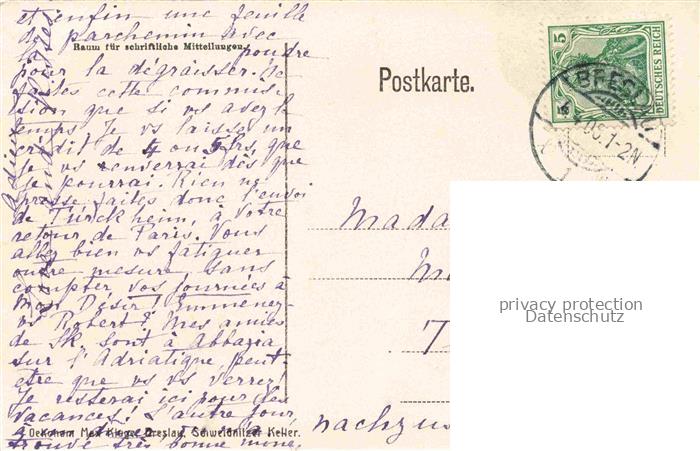 et enfin une feuille
de parchemin avec
Raum für schriftliche Mitteilungen. poudre
pour la dégraisser. Je
faites cette commis-
sion que si vs avez le
temps. Je vs laisse un
crédit de 4 ou 5 frs, que
je vs renverrai dès que
je pourrai. Rien ne
presse, faites donc l'envoi
de Türckheim, à votre
retour de Paris. Vous
allez bien vs fatiguer
outre mesure, sans
compter vos journées à
Mon Désir! Emmenez-
vs Robert? Mes amies
de Sk. sont à Abbazia
sur l'Adriatique, peut-
etre que vs vs verrez!
Je resterai ici pour les
vacances! L'autre jour,
Oekonom Max Kluge, Breslau, Schweidnitzer Keller.
trouvé très bonne mine.
Postkarte.
5
DEUTSCHES REICH
BRESL
1-2N
Mada
T
nachzu
privacy protection
Datenschutz